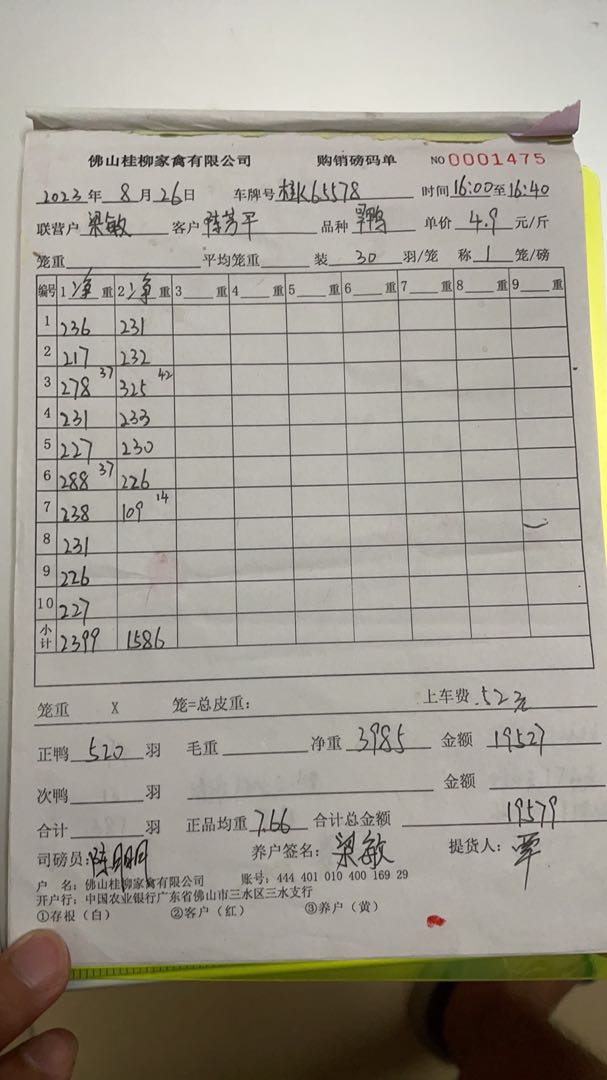 佛山桂柳家禽有限公司 购销磅码单 NO 0001475
2023年8月26日 车牌号 桂K65578 时间 16:00至16:40
联营户 梁敏 客户 陈芳平 品种 鸭 单价 4.9 元/斤
笼重 平均笼重 装 30 羽/笼 称 1 笼/磅
编号 1 净 重 2 净 重 3 重 4 重 5 重 6 重 7 重 8 重 9 重
1 236 231
2 217 232
3 278 37 325 42
4 231 233
5 227 230
6 288 37 226
7 238 109 14
8 231
9 226
10 227
小计 2399 1586
笼重 X 笼=总皮重: 上车费 52元
正鸭 520 羽 毛重 净重 3985 金额 19527
次鸭 羽 金额
合计 羽 正品均重 7.66 合计总金额 19579
司磅员: 陈明明 养户签名: 梁敏 提货人: 覃
户 名: 佛山桂柳家禽有限公司 账号: 444 401 010 400 169 29
开户行: 中国农业银行广东省佛山市三水区三水支行
①存根(白) ②客户(红) ③养户(黄)